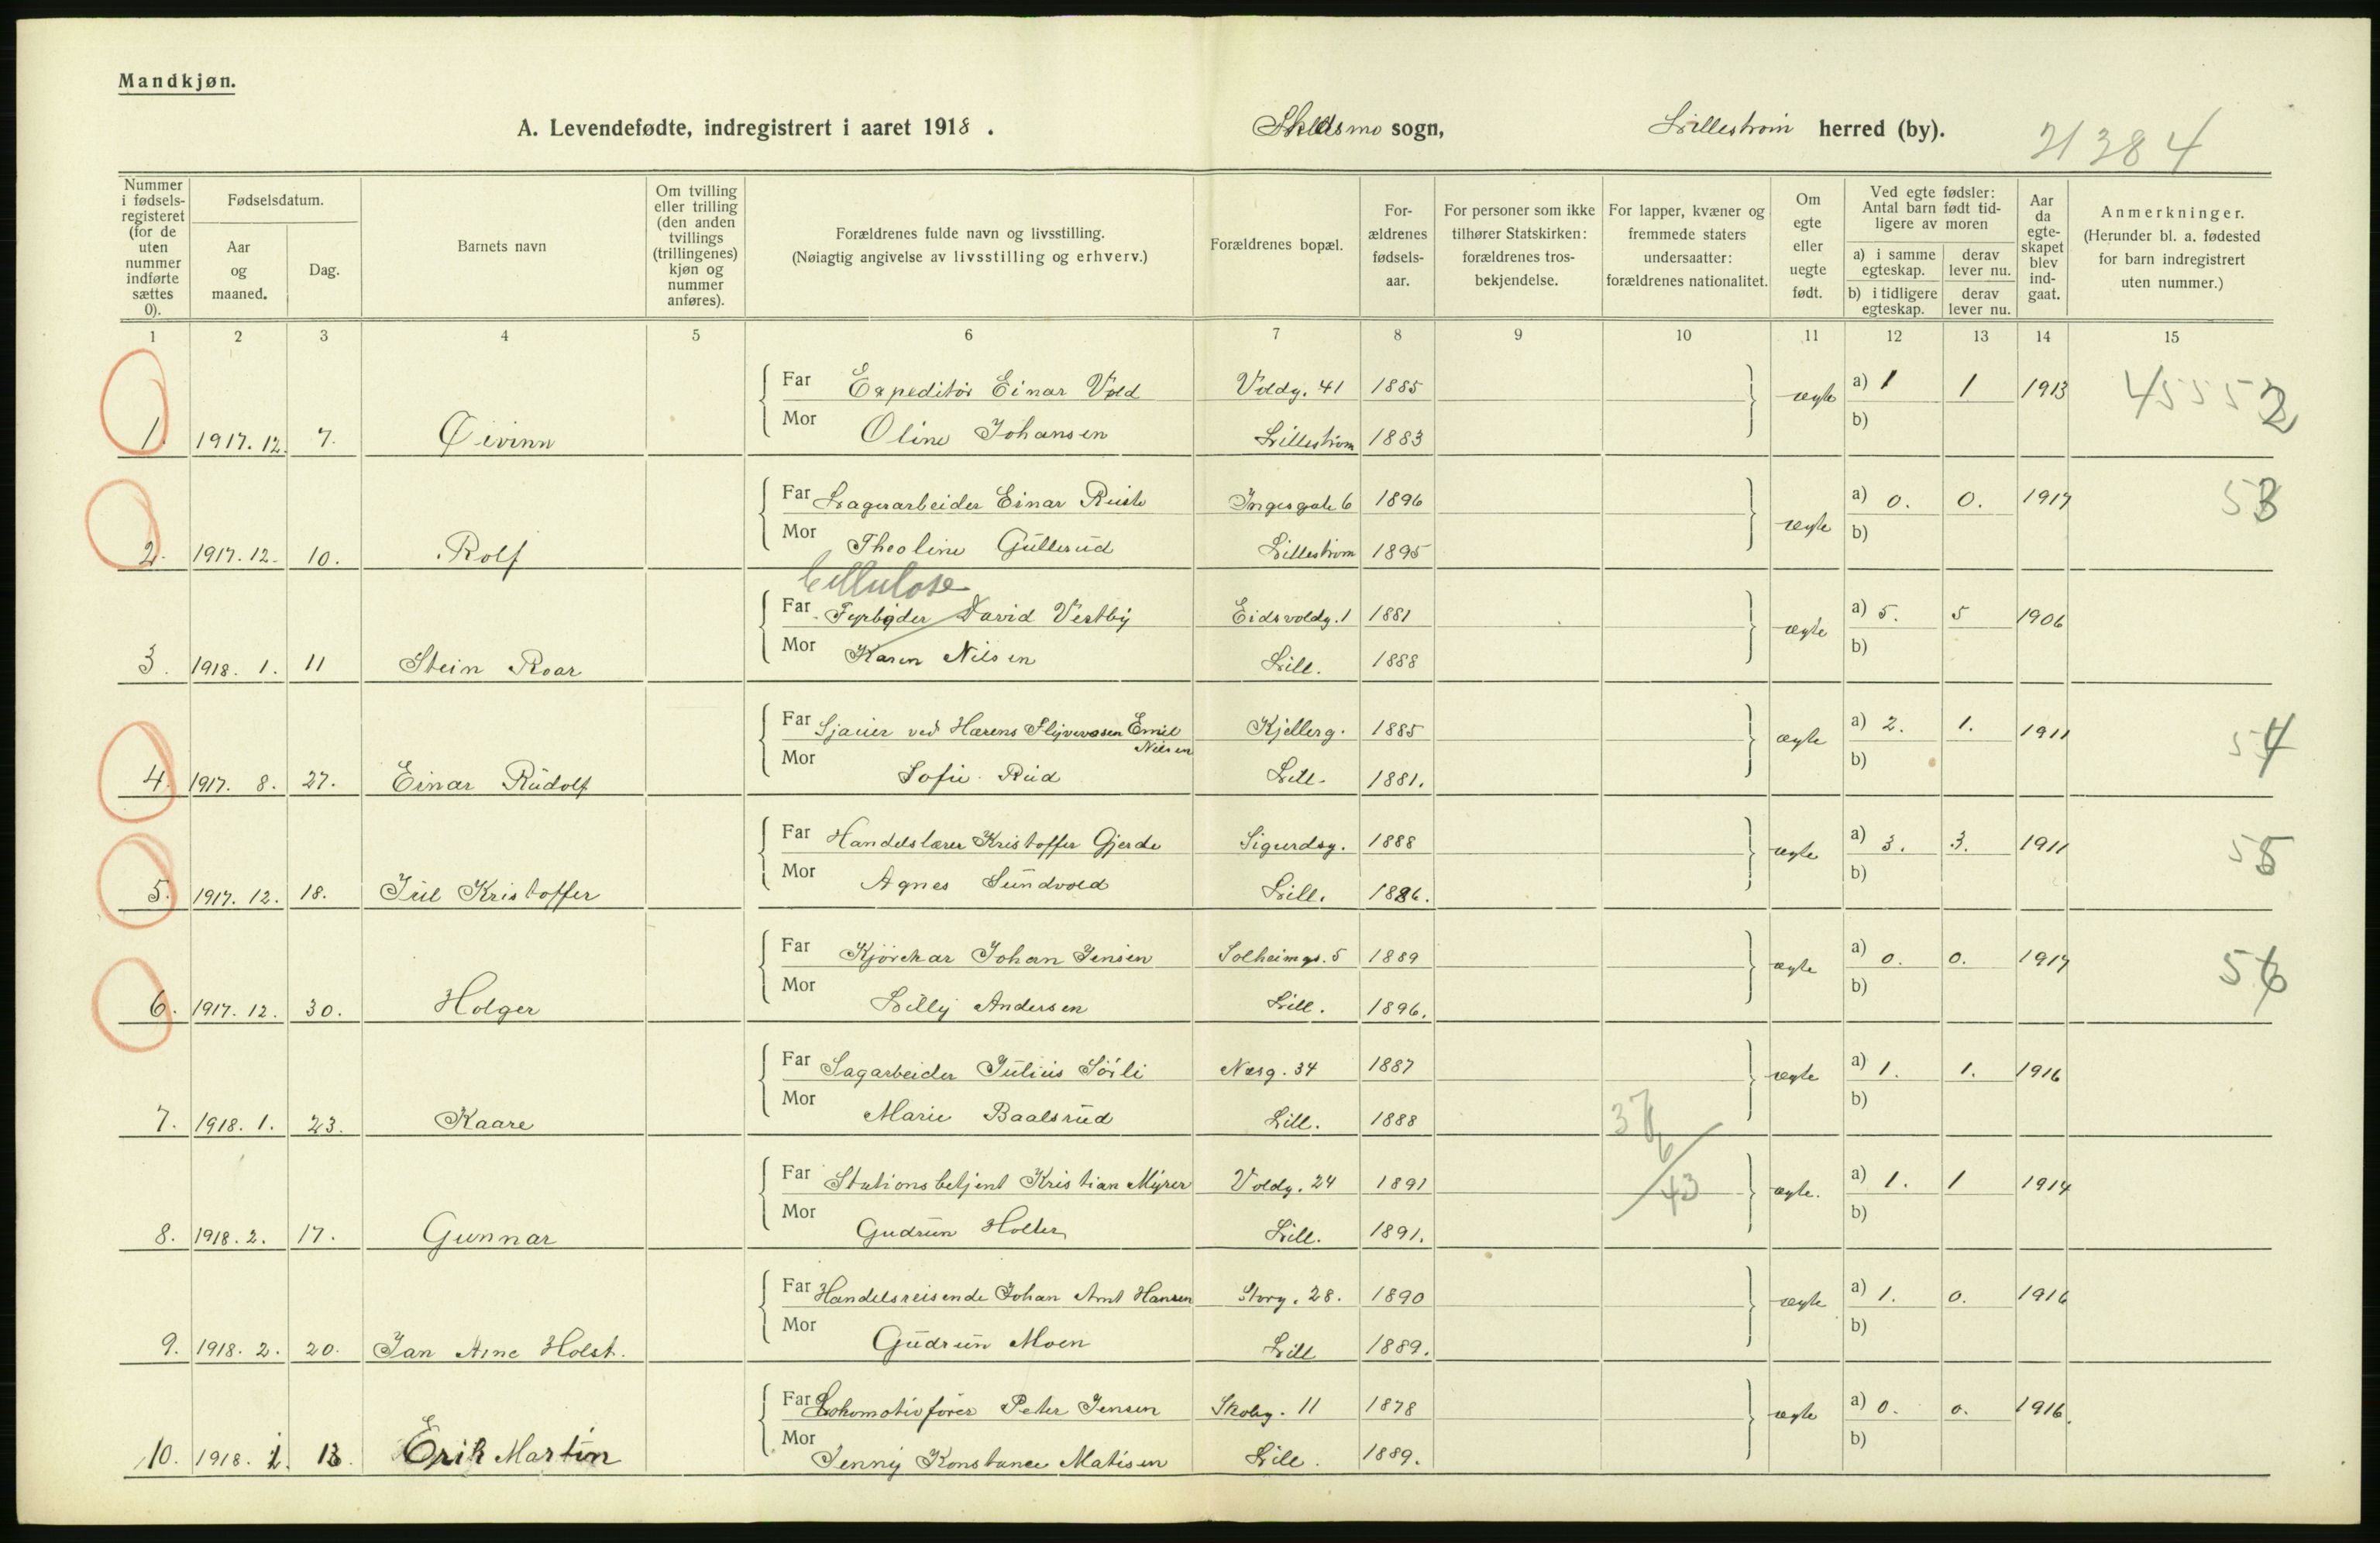 Mandkjøn.
A. Levendefødte, indregistrert i aaret 1918 . Skedsmo sogn, Lillestrøm herred (by). 21384
Nummer i fødselsregisteret (for de uten nummer indførte sættes 0).
Fødselsdatum.
Aar og maaned.
Dag.
Barnets navn
Om tvilling eller trilling (den anden tvillings (trillingenes) kjøn og nummer anføres).
Forældrenes fulde navn og livsstilling.
(Nøiagtig angivelse av livsstilling og erhverv.)
Forældrenes bopæl.
For-ældrenes fødsels-aar.
For personer som ikke tilhører Statskirken: forældrenes tros-bekjendelse.
For lapper, kvæner og fremmede staters undersaatter: forældrenes nationalitet.
Om egte eller uegte født.
Ved egte fødsler: Antal barn født tid-ligere av moren
a) i samme egteskap. derav lever nu.
b) i tidligere egteskap. derav lever nu.
Aar da egte-skapet blev ind-gaat.
Anmerkninger.
(Herunder bl. a. fødested for barn indregistrert uten nummer.)
1 2 3 4 5 6 7 8 9 10 11 12 13 14 15
Far Expeditør Einar Vold Voldg. 41 1885 ægte a) 1 1 1913 45552
1. 1917. 12. 7. Øivinn Mor Oline Johansen Lillestrøm 1883 b)
Far Lagerarbeider Einar Ingesgate 6 1896 ægte a) 0. 0. 1917 53
2. 1917. 12. 10. Rolf Mor Theoline Gullerud Lillestrøm 1895 b)
Cellulose
Far Fyrbøder David Vestby Eidsvoldg. 1 1881 ægte a) 5. 5 1906
3. 1918. 1. 11 Stein Roar Mor Karen Nilsen Lill. 1888 b)
Far Sjauer ved Hærens Flyvevæsen Emil Nilsen Kjellerg. 1885 ægte a) 2. 1. 1911 54
4. 1917. 8. 27. Einar Rudolf Mor Sofie Rud Lill. 1881. b)
Far Handelslærer Kristoffer Gjerde Sigurdsg. 1888 ægte a) 3. 3. 1911 55
5. 1917. 12. 18. Jul Kristoffer Mor Agnes Sundvold Lill. 1886. b)
Far Kjørekar Johan Jensen Solheimgt. 5 1889 ægte a) 0. 0. 1917 56
6. 1917. 12. 30. Holger Mor Lilly Andersen Lill. 1896. b)
Far Sagarbeider Julius Sörli Næsg. 34 1887 ægte a) 1. 1. 1916
7. 1918. 1. 23. Kaare Mor Marie Baalsrud Lill. 1888 b)
Far Stationsbetjent Kristian Myrer Voldg. 24 1891 43 ægte. a) 1. 1 1914
8. 1918. 2. 17. Gunnar Mor Gudrun Holter Lill. 1891. b)
Far Handelsreisende Johan Arnt Hansen Storg. 28. 1890 ægte a) 1. 0. 1916
9. 1918. 2. 20. Jan Arne Holst. Mor Gudrun Moen Lill 1889. b)
Far Lokomotivfører Peter Jensen Skoleg. 11 1878 ægte a) 0. 0. 1916.
10. 1918. 1. 13. Erik Martin Mor Jenny Konstance Matisen Lill. 1889. b)